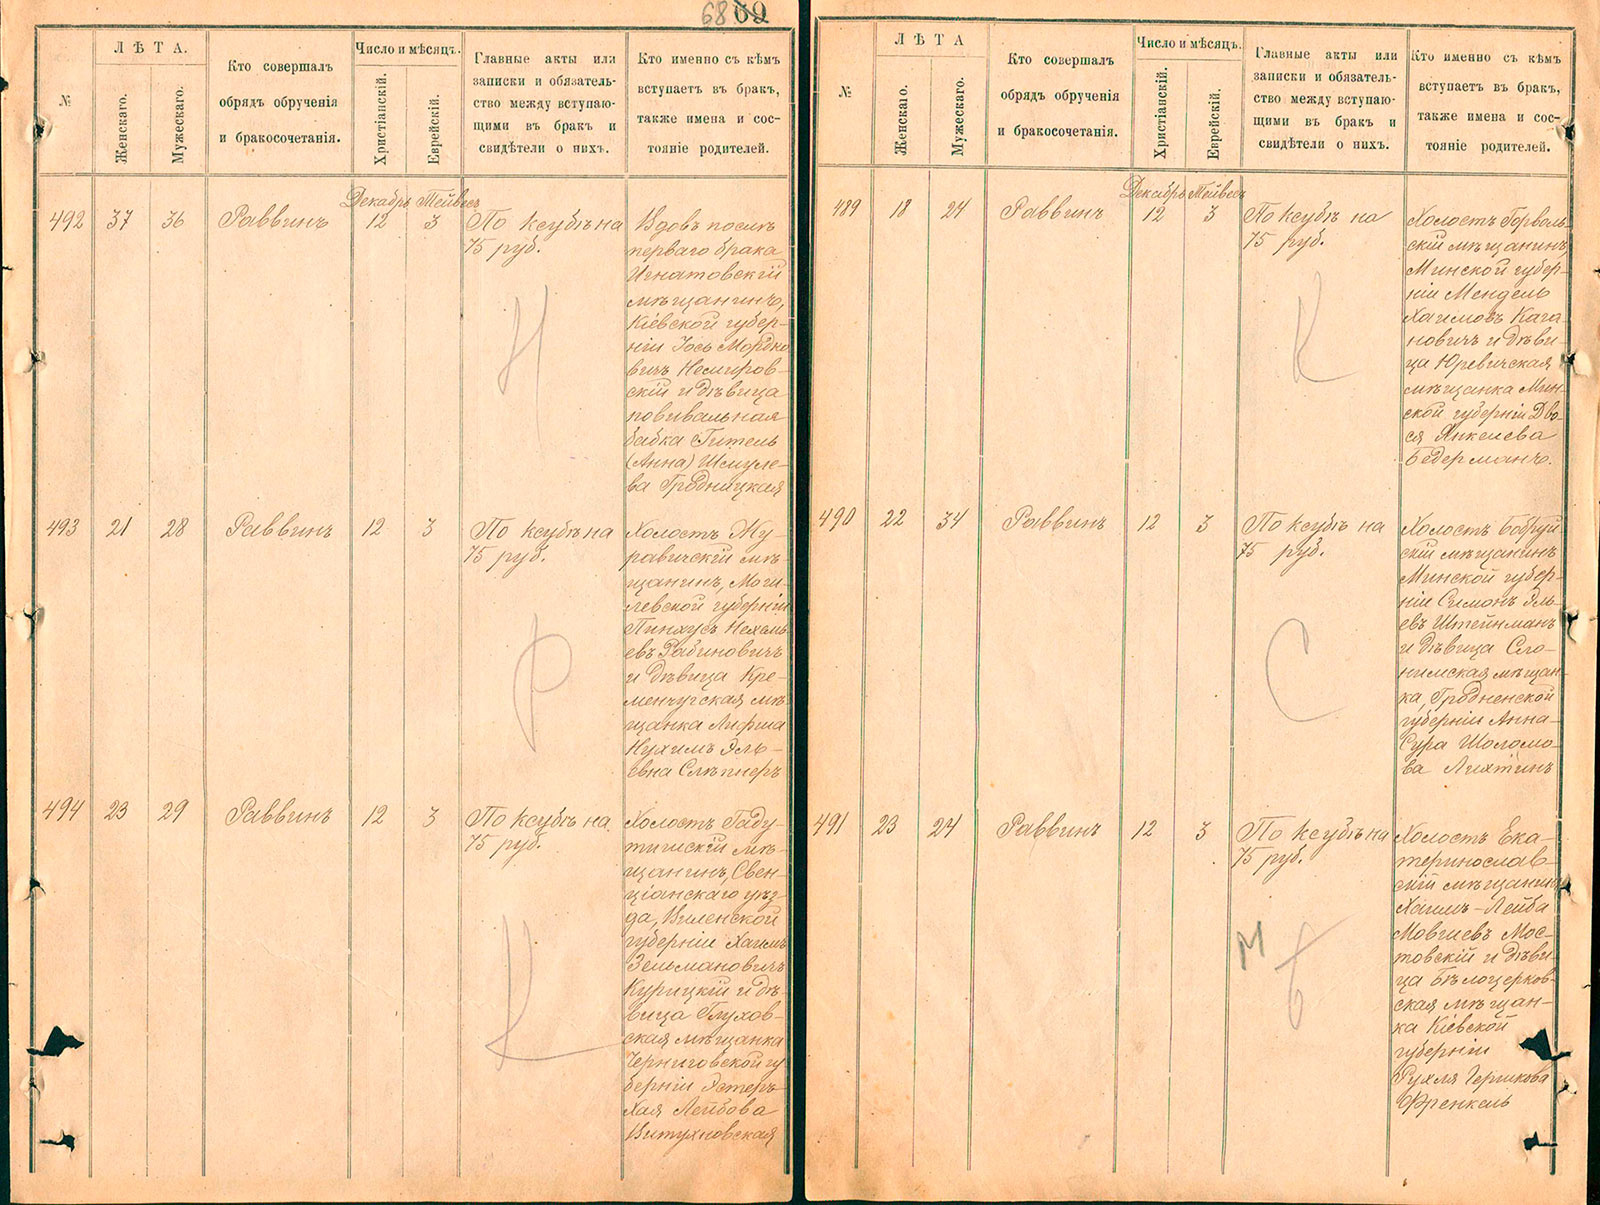 68 69
№
ЛѢТА.
Женскаго.
Мужескаго.
Кто совершалъ
обрядъ обрученія
и бракосочетанія.
Число и мѣсяцъ.
Христіанскій.
Еврейскій.
Главные акты или
записки и обязатель-
ство между вступаю-
щими въ бракъ и
свидѣтели о нихъ.
Кто именно съ кѣмъ
вступаетъ въ бракъ,
также имена и сос-
тояніе родителей.
Декабрь Тейвесъ
492 37 36 Раввинъ 12 3 По ксубѣ на
75 руб.
Вдовъ послѣ
перваго брака
Игнатовскій
мѣщанинъ,
Кіевской губер-
ніи Іось Мордко
вичъ Немиров-
скій и дѣвица
повивальная
бабка Гитель
(Анна) Шмуле-
ва Гродницкая
Н
493 21 28 Раввинъ 12 3 По ксубѣ на
75 руб.
Холостъ Жу-
равичскій мѣ-
щанинъ, Моги-
левской губерніи
Пинхусъ Нехемь
евъ Рабиновичъ
и дѣвица Кре-
менчугская мѣ-
щанка Лифша
Нухимъ Эль-
евна Слѣпнеръ
Р
494 23 29 Раввинъ 12 3 По ксубѣ на
75 руб.
Холостъ Гаду-
тишскій мѣ-
щанинъ, Свен-
ціанскаго уѣз-
да, Виленской
губерніи Хаимъ
Зельмановичъ
Курицкій и дѣ-
вица Глухов-
ская мѣщанка
Черниговской гу
берніи Эстеръ-
Хая Лейбова
Витухновская
К
№
ЛѢТА
Женскаго.
Мужескаго.
Кто совершалъ
обрядъ обрученія
и бракосочетанія.
Число и мѣсяцъ.
Христіанскій.
Еврейскій.
Главные акты или
записки и обязатель-
ство между вступаю-
щими въ бракъ и
свидѣтели о нихъ.
Кто именно съ кѣмъ
вступаетъ въ бракъ,
также имена и сос-
тояніе родителей.
Декабрь Тейвесъ
489 18 24 Раввинъ 12 3 По ксубѣ на
75 руб.
Холостъ Горваль-
скій мѣщанинъ,
Минской губер-
ніи Мендель
Хаимовъ Кага
новичъ и дѣви-
ца Юревичская
мѣщанка Мин-
ской губерніи Дво-
ся Янкелева
Бедерманъ.
К
490 22 34 Раввинъ 12 3 По ксубѣ на
75 руб.
Холостъ Бобруй
скій мѣщанинъ
Минской губер-
ніи Симонъ Эль-
евъ Штейнманъ
и дѣвица Сло-
нимская мѣщан-
ка, Гродненской
губерніи Анна-
Сура Шоломо-
ва Лихтинъ
С
491 23 24 Раввинъ 12 3 По ксубѣ на
75 руб.
Холостъ Ека-
теринослав-
скій мѣщанинъ
Хаимъ-Лейба
Мовшевъ Мос-
товскій и дѣви-
ца Бѣлоцерков-
ская мѣщан-
ка Кіевской
губерніи
Рухля Гершкова
Френкель
М